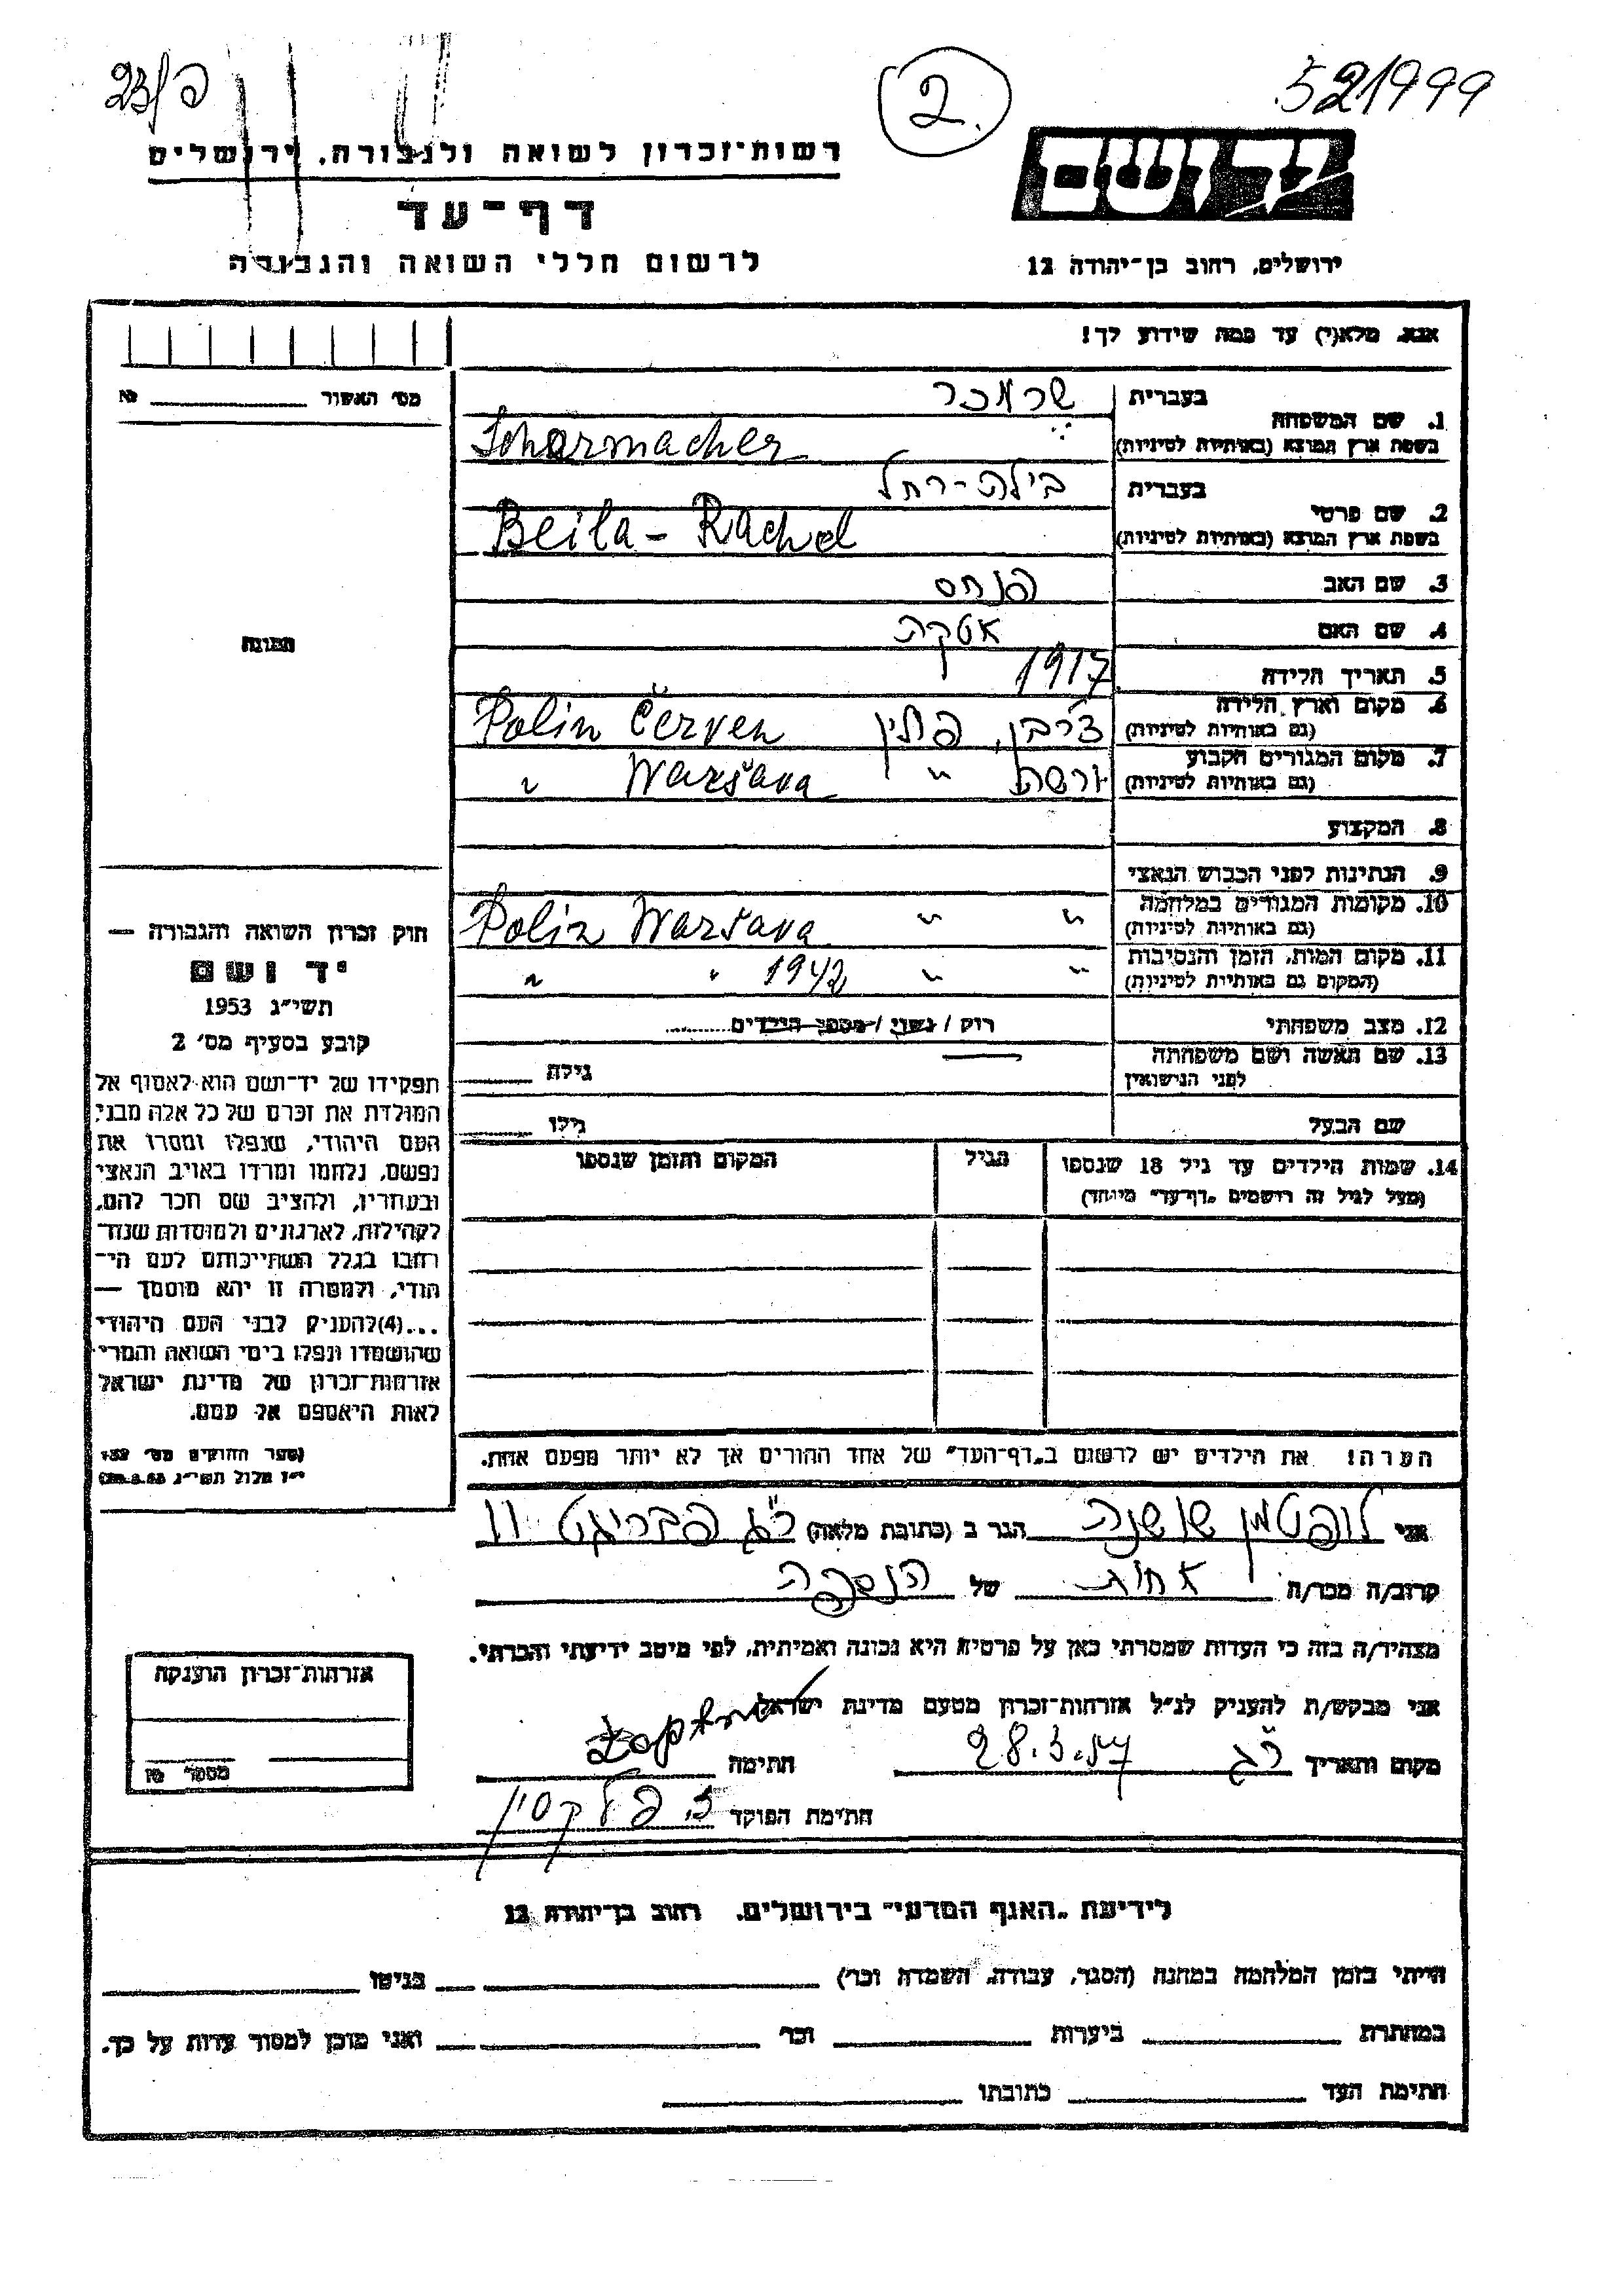 23/פ
2.
521999
רשות־זכרון לשואה ולגבורה, ירושלים
דף־עד
לרשום חללי השואה והגבורה
יד ושם
ירושלים, רחוב בן־יהודה 12
אנא, מלא(י) עד כמה שידוע לך!
מס׳ האשור
1. שם המשפחה
בעברית
שרמכר
בשפת ארץ המוצא (באותיות לטיניות)
Scharmacher
2. שם פרטי
בעברית
בילה-רחל
בשפת ארץ המוצא (באותיות לטיניות)
Beila - Rachel
3. שם האב
פנחס
4. שם האם
אטקה
5. תאריך הלידה
1917
6. מקום וארץ הלידה
(גם באותיות לטיניות)
צ'רבן, פולין Polin Červen
7. מקום המגורים הקבוע
(גם באותיות לטיניות)
ורשה " Waršava "
8. המקצוע
9. הנתינות לפני הכבוש הנאצי
10. מקומות המגורים במלחמה
(גם באותיות לטיניות)
" " Polin Waršava
11. מקום המות, הזמן והנסיבות
(המקום גם באותיות לטיניות)
" " 1942 " "
12. מצב משפחתי
רווק / נשוי / מספר הילדים
13. שם האשה ושם משפחתה
לפני הנישואין
גילה
שם הבעל
גילו
14. שמות הילדים עד גיל 18 שנספו
(מעל לגיל זה רושמים „דף־עד" מיוחד)
הגיל
המקום והזמן שנספו
הערה! את הילדים יש לרשום ב„דף־העד" של אחד ההורים אך לא יותר מפעם אחת.
תמונה
חוק זכרון השואה והגבורה —
יד ושם
תשי״ג 1953
קובע בסעיף מס׳ 2
תפקידו של יד־ושם הוא לאסוף אל
המולדת את זכרם של כל אלה מבני
העם היהודי, שנפלו ומסרו את
נפשם, נלחמו ומרדו באויב הנאצי
ובעוזריו, ולהציב שם וזכר להם,
לקהילות, לארגונים ולמוסדות שנח־
רבו בגלל השתייכותם לעם הי־
הודי, ולמטרה זו יהא מוסמך —
...(4) להעניק לבני העם היהודי
שהושמדו ונפלו בימי השואה והמרי
אזרחות־זכרון של מדינת ישראל
לאות היאספם אל עמם.
(ספר החוקים מס׳ 132
אני לופטמן שושנה הגר ב (כתובת מלאה) ר"ג
קרוב/ה מכר/ה אחות של הנספה
מצהיר/ה בזה כי העדות שמסרתי כאן על פרטיה היא נכונה ואמיתית, לפי מיטב ידיעתי והכרתי.
אני מבקש/ת להעניק לנ״ל אזרחות־זכרון מטעם מדינת ישראל
מקום ותאריך ר"ג 28.3.57 חתימה
חתימת הפוקד
אזרחות־זכרון הוענקה
מספר
לידיעת „האגף המדעי" בירושלים, רחוב בן־יהודה 12
הייתי בזמן המלחמה במחנה (הסגר, עבודה, השמדה וכו׳) בגיטו
במחתרת ביערות וכו׳ ואני מוכן למסור עדות על כך.
חתימת העד כתובתו